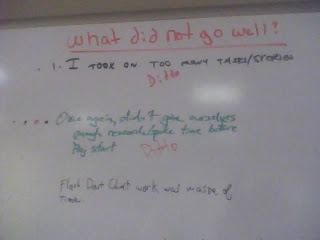 what did not go well?
1. I TOOK ON TOO MANY TASKS/STORIES
Ditto
Once again, didn't give ourselves
enough research/spike time before
Play start
Ditto
Flash Chat work was waste of
time